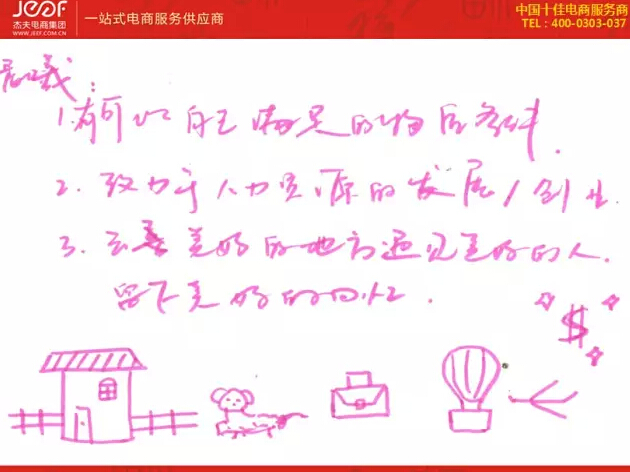 JEEF
杰夫电商集团
WWW.JEEF.COM.CN
一站式电商服务供应商
中国十佳电商服务商
TEL：400-0303-037
1.有可以自己满足的物质条件.
2.致力于人力资源的发展/创业.
3.去美好的地方遇见美好的人.
留下美好的回忆.
$